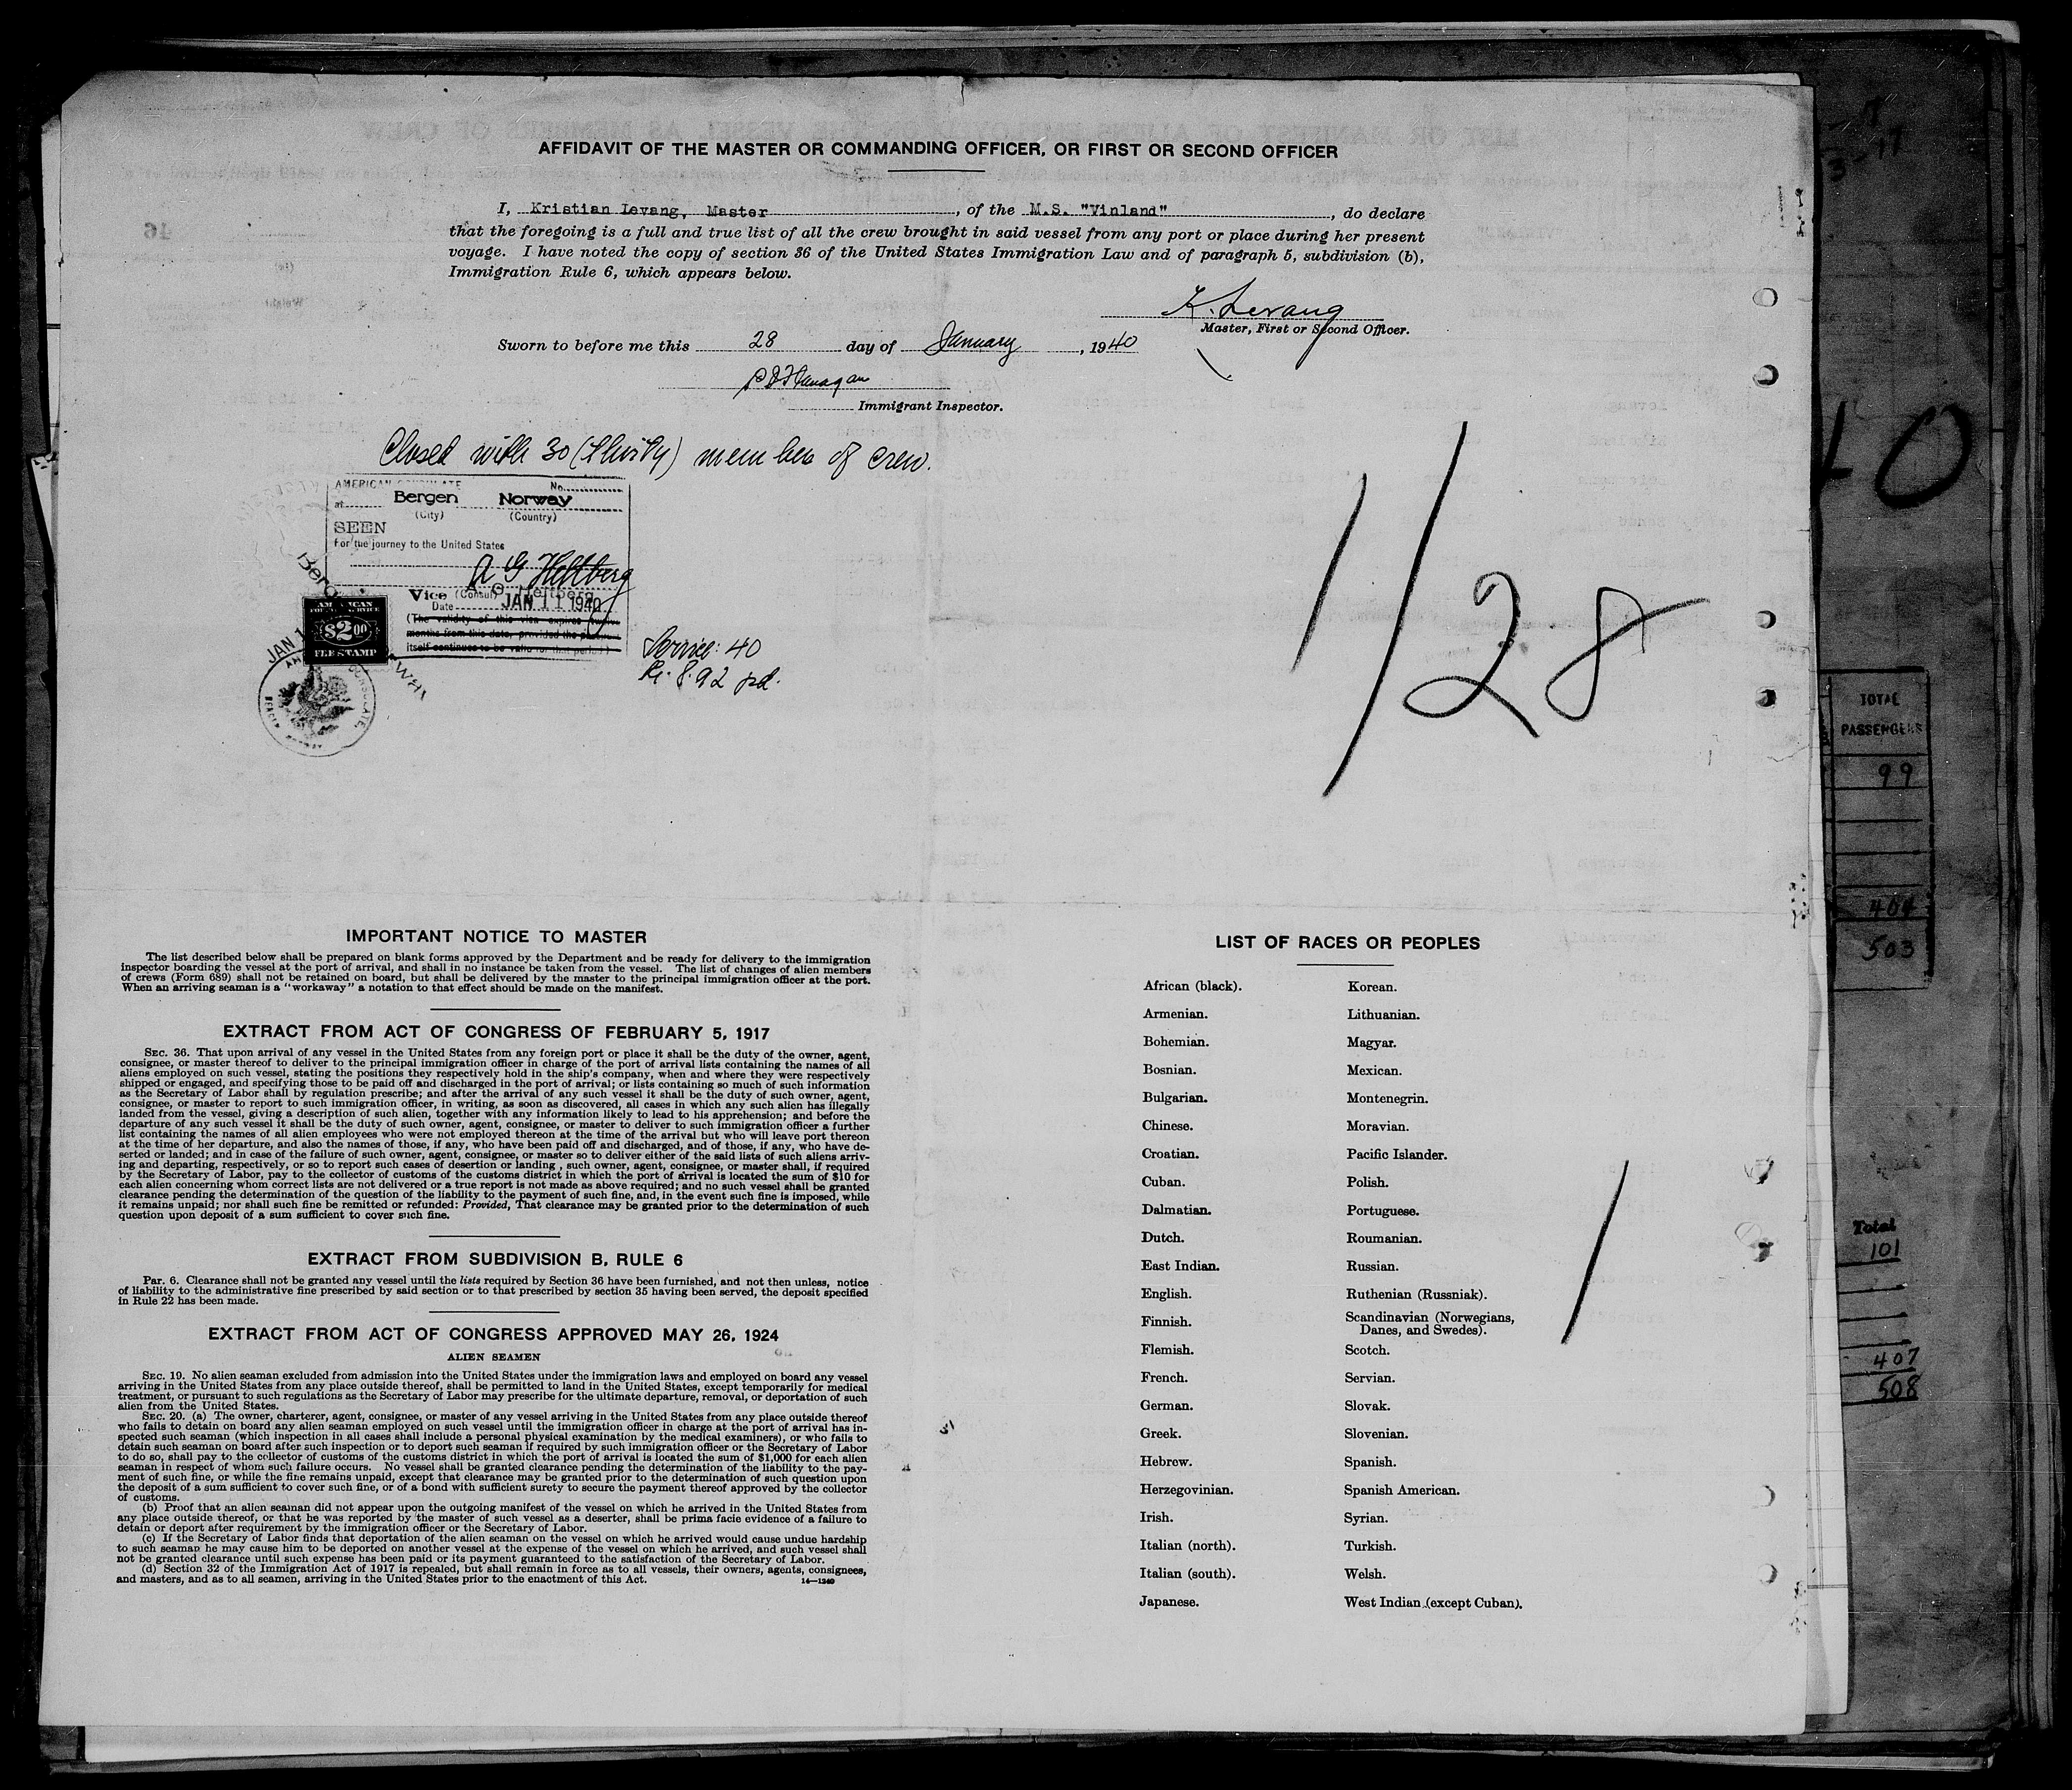 AFFIDAVIT OF THE MASTER OR COMMANDING OFFICER, OR FIRST OR SECOND OFFICER
I, Kristian Levang, Master, of the M.S. "Vinland", do declare
that the foregoing is a full and true list of all the crew brought in said vessel from any port or place during her present
voyage. I have noted the copy of section 36 of the United States Immigration Law and of paragraph 5, subdivision (b),
Immigration Rule 6, which appears below.
K. Levang
Master, First or Second Officer.
Sworn to before me this 28 day of January, 1940
Immigrant Inspector.
Closed with 30 (thirty) member of crew.
AMERICAN CONSULATE No.
at Bergen Norway
(City) (Country)
SEEN
For the journey to the United States
A G Heltberg
A. G. Heltberg
Vice (Consul)
Date JAN 11 1940
(The validity of this visa expires twelve
months from this date, provided the
itself continues to be valid for that period.)
AMERICAN
$2.00
FEE STAMP
Service: 40
Kr. 8.92 pd.
1/28
40
TOTAL
PASSENGERS
99
404
503
Total
101
407
508
IMPORTANT NOTICE TO MASTER
The list described below shall be prepared on blank forms approved by the Department and be ready for delivery to the immigration
inspector boarding the vessel at the port of arrival, and shall in no instance be taken from the vessel. The list of changes of alien members
of crews (Form 689) shall not be retained on board, but shall be delivered by the master to the principal immigration officer at the port.
When an arriving seaman is a "workaway" a notation to that effect should be made on the manifest.
EXTRACT FROM ACT OF CONGRESS OF FEBRUARY 5, 1917
SEC. 36. That upon arrival of any vessel in the United States from any foreign port or place it shall be the duty of the owner, agent,
consignee, or master thereof to deliver to the principal immigration officer in charge of the port of arrival lists containing the names of all
aliens employed on such vessel, stating the positions they respectively hold in the ship's company, when and where they were respectively
shipped or engaged, and specifying those to be paid off and discharged in the port of arrival; or lists containing so much of such information
as the Secretary of Labor shall by regulation prescribe; and after the arrival of any such vessel it shall be the duty of such owner, agent,
consignee, or master to report to such immigration officer, in writing, as soon as discovered, all cases in which any such alien has illegally
landed from the vessel, giving a description of such alien, together with any information likely to lead to his apprehension; and before the
departure of any such vessel it shall be the duty of such owner, agent, consignee, or master to deliver to such immigration officer a further
list containing the names of all alien employees who were not employed thereon at the time of the arrival but who will leave port thereon
at the time of her departure, and also the names of those, if any, who have been paid off and discharged, and of those, if any, who have de-
serted or landed; and in case of the failure of such owner, agent, consignee, or master so to deliver either of the said lists of such aliens arriv-
ing and departing, respectively, or so to report such cases of desertion or landing , such owner, agent, consignee, or master shall, if required
by the Secretary of Labor, pay to the collector of customs of the customs district in which the port of arrival is located the sum of $10 for
each alien concerning whom correct lists are not delivered or a true report is not made as above required; and no such vessel shall be granted
clearance pending the determination of the question of the liability to the payment of such fine, and, in the event such fine is imposed, while
it remains unpaid; nor shall such fine be remitted or refunded: Provided, That clearance may be granted prior to the determination of such
question upon deposit of a sum sufficient to cover such fine.
EXTRACT FROM SUBDIVISION B, RULE 6
Par. 6. Clearance shall not be granted any vessel until the lists required by Section 36 have been furnished, and not then unless, notice
of liability to the administrative fine prescribed by said section or to that prescribed by section 35 having been served, the deposit specified
in Rule 22 has been made.
EXTRACT FROM ACT OF CONGRESS APPROVED MAY 26, 1924
ALIEN SEAMEN
SEC. 19. No alien seaman excluded from admission into the United States under the immigration laws and employed on board any vessel
arriving in the United States from any place outside thereof, shall be permitted to land in the United States, except temporarily for medical
treatment, or pursuant to such regulations as the Secretary of Labor may prescribe for the ultimate departure, removal, or deportation of such
alien from the United States.
SEC. 20. (a) The owner, charterer, agent, consignee, or master of any vessel arriving in the United States from any place outside thereof
who fails to detain on board any alien seaman employed on such vessel until the immigration officer in charge at the port of arrival has in-
spected such seaman (which inspection in all cases shall include a personal physical examination by the medical examiners), or who fails to
detain such seaman on board after such inspection or to deport such seaman if required by such immigration officer or the Secretary of Labor
to do so, shall pay to the collector of customs of the customs district in which the port of arrival is located the sum of $1,000 for each alien
seaman in respect of whom such failure occurs. No vessel shall be granted clearance pending the determination of the liability to the pay-
ment of such fine, or while the fine remains unpaid, except that clearance may be granted prior to the determination of such question upon
the deposit of a sum sufficient to cover such fine, or of a bond with sufficient surety to secure the payment thereof approved by the collector
of customs.
(b) Proof that an alien seaman did not appear upon the outgoing manifest of the vessel on which he arrived in the United States from
any place outside thereof, or that he was reported by the master of such vessel as a deserter, shall be prima facie evidence of a failure to
detain or deport after requirement by the immigration officer or the Secretary of Labor.
(c) If the Secretary of Labor finds that deportation of the alien seaman on the vessel on which he arrived would cause undue hardship
to such seaman he may cause him to be deported on another vessel at the expense of the vessel on which he arrived, and such vessel shall
not be granted clearance until such expense has been paid or its payment guaranteed to the satisfaction of the Secretary of Labor.
(d) Section 32 of the Immigration Act of 1917 is repealed, but shall remain in force as to all vessels, their owners, agents, consignees,
and masters, and as to all seamen, arriving in the United States prior to the enactment of this Act. 14—1240
LIST OF RACES OR PEOPLES
African (black). Korean.
Armenian. Lithuanian.
Bohemian. Magyar.
Bosnian. Mexican.
Bulgarian. Montenegrin.
Chinese. Moravian.
Croatian. Pacific Islander.
Cuban. Polish.
Dalmatian. Portuguese.
Dutch. Roumanian.
East Indian. Russian.
English. Ruthenian (Russniak).
Finnish. Scandinavian (Norwegians,
Danes, and Swedes).
Flemish. Scotch.
French. Servian.
German. Slovak.
Greek. Slovenian.
Hebrew. Spanish.
Herzegovinian. Spanish American.
Irish. Syrian.
Italian (north). Turkish.
Italian (south). Welsh.
Japanese. West Indian (except Cuban).